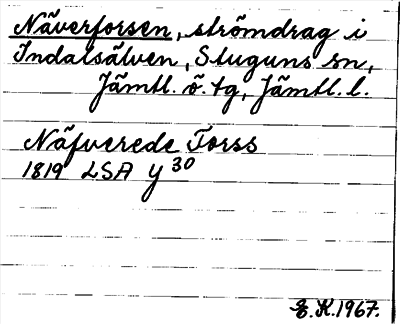 Näverforsen, strömdrag i
Indalsälven, Stuguns sn,
Jämtl. ö. tg, Jämtl. l.
Näfverede Forss
1819 LSA y 30
E. K. 1967.